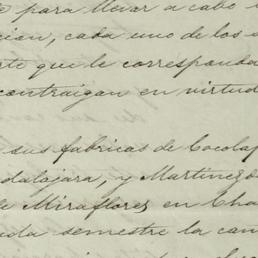 para llevar a cabo
cion, cada uno de los
te que le corresponda
contraigan en virtud
sus fabricas de Cocolap
dalajara, y Martinez
de Miraflores en Cha
semestre la can